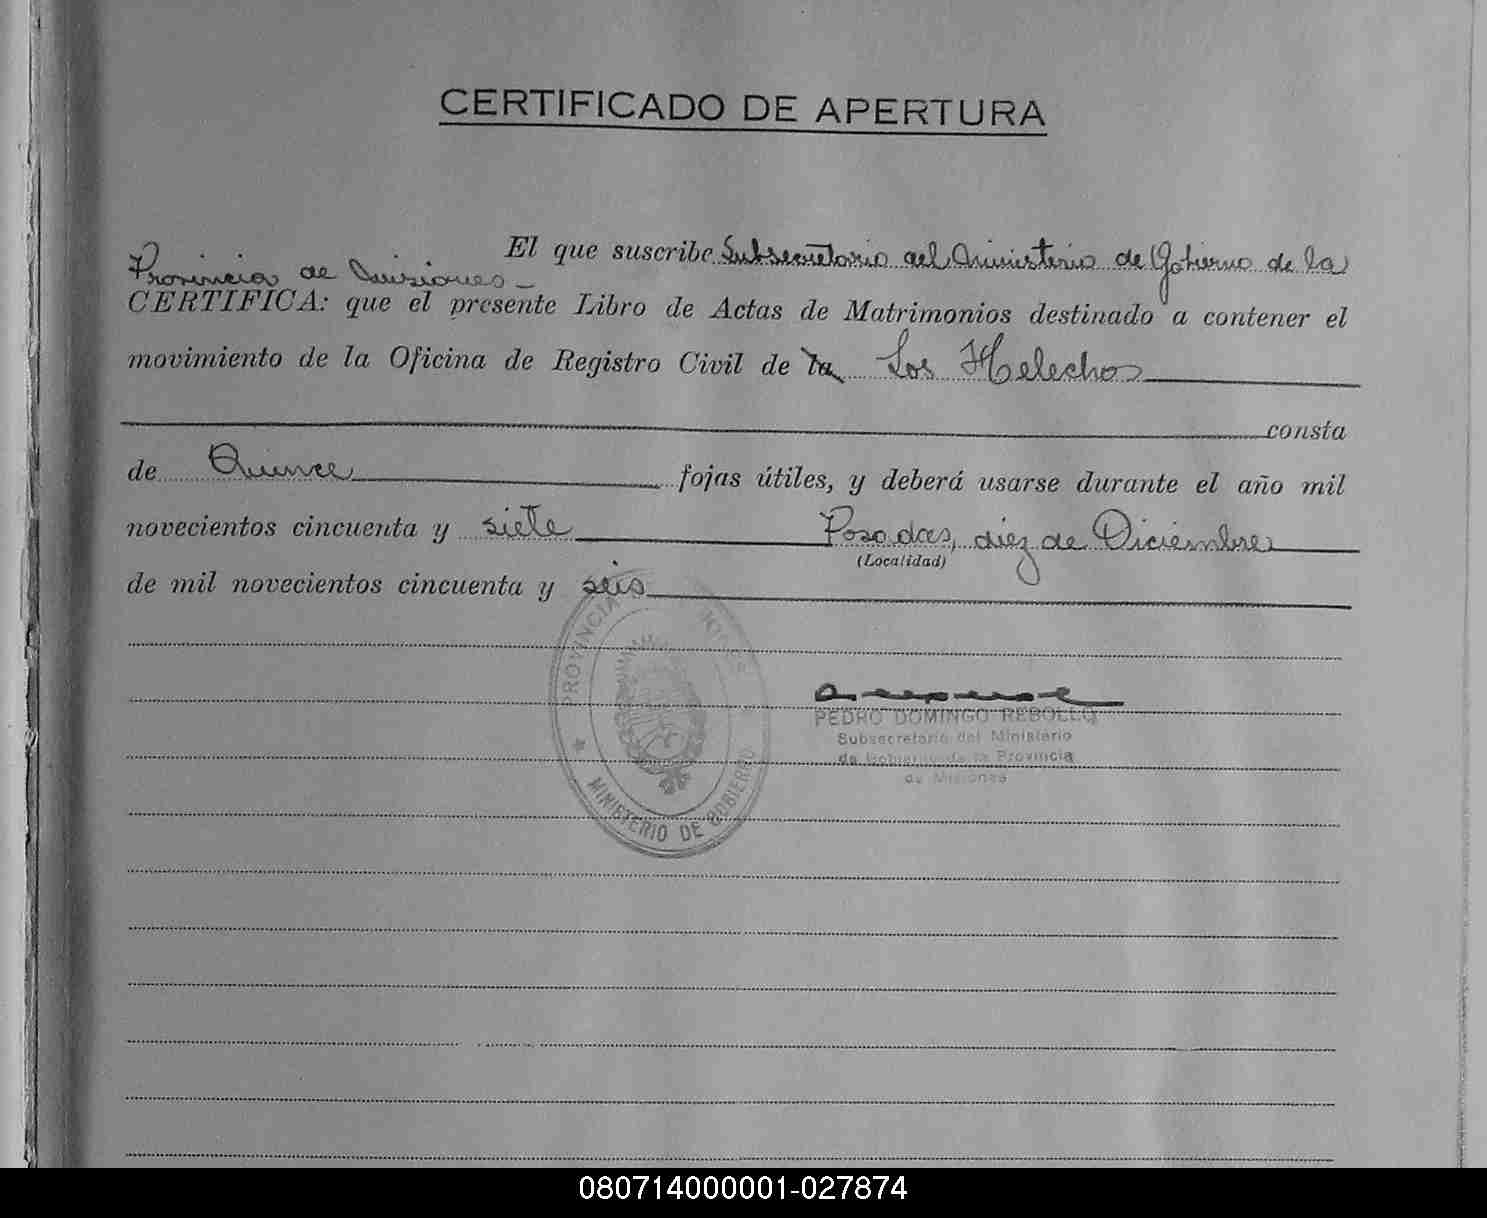 CERTIFICADO DE APERTURA
El que suscribe Subsecretario del Ministerio de Gobierno de la
Provincia de Misiones
CERTIFICA: que el presente Libro de Actas de Matrimonios destinado a contener el
movimiento de la Oficina de Registro Civil de la Los Helechos
consta
de Quince fojas útiles, y deberá usarse durante el año mil
novecientos cincuenta y siete Posadas, diez de Diciembre
(Localidad)
de mil novecientos cincuenta y seis
PROVINCIA
MINISTERIO DE GOBIERNO
PEDRO DOMINGO REBOLLO
Subsecretario del Ministerio
de Gobierno de la Provincia
de Misiones
080714000001-027874